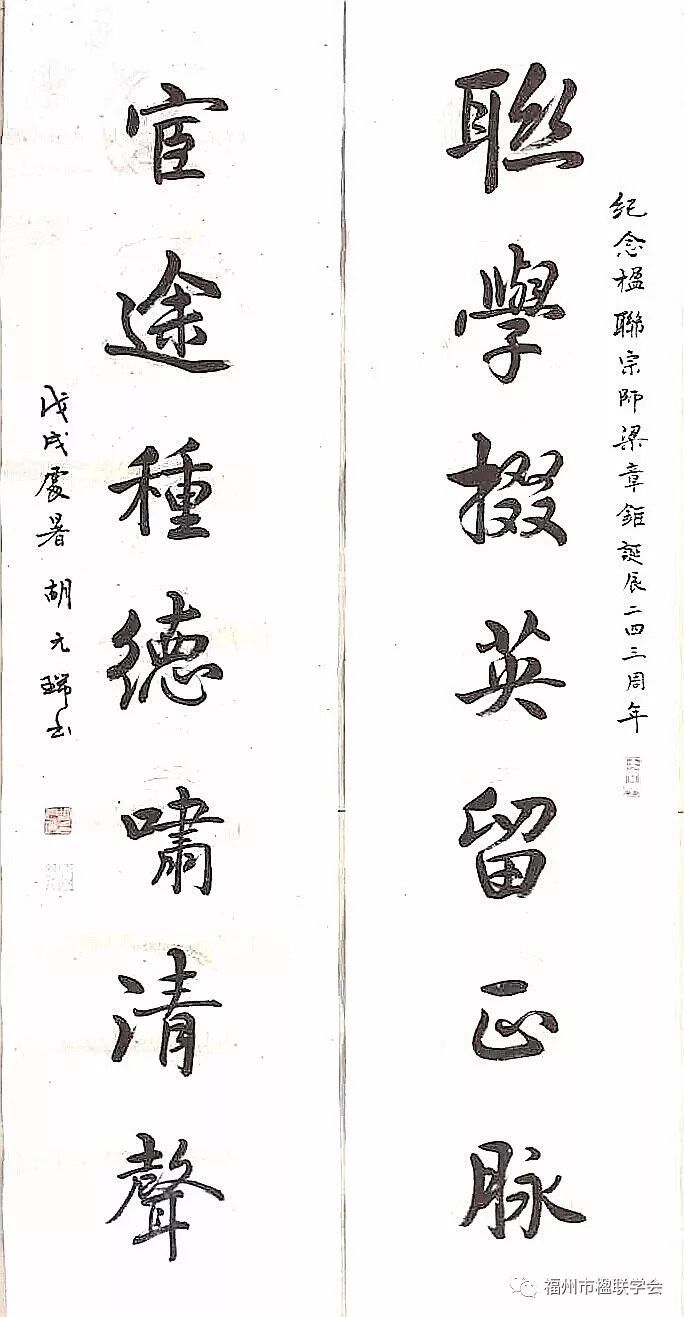 紀念楹聯宗師梁章鉅誕辰二四三周年
聯學掇英留正脉
宦途種德嘯清聲
戊戌處暑胡元瑞书
福州市楹联学会